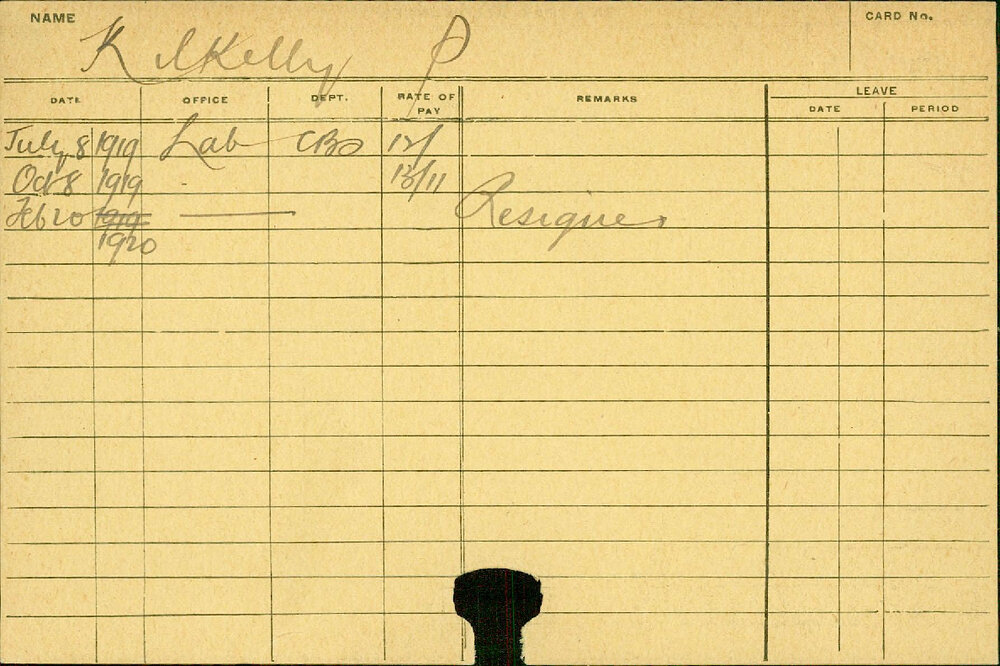 NAME CARD No.
Kilkelly P
LEAVE
DATE OFFICE DEPT. RATE OF PAY REMARKS DATE PERIOD
July 8 1919 Lab CBO 12/
Oct 8 1919 13/11
Feb 20 1919 Resigned
1920